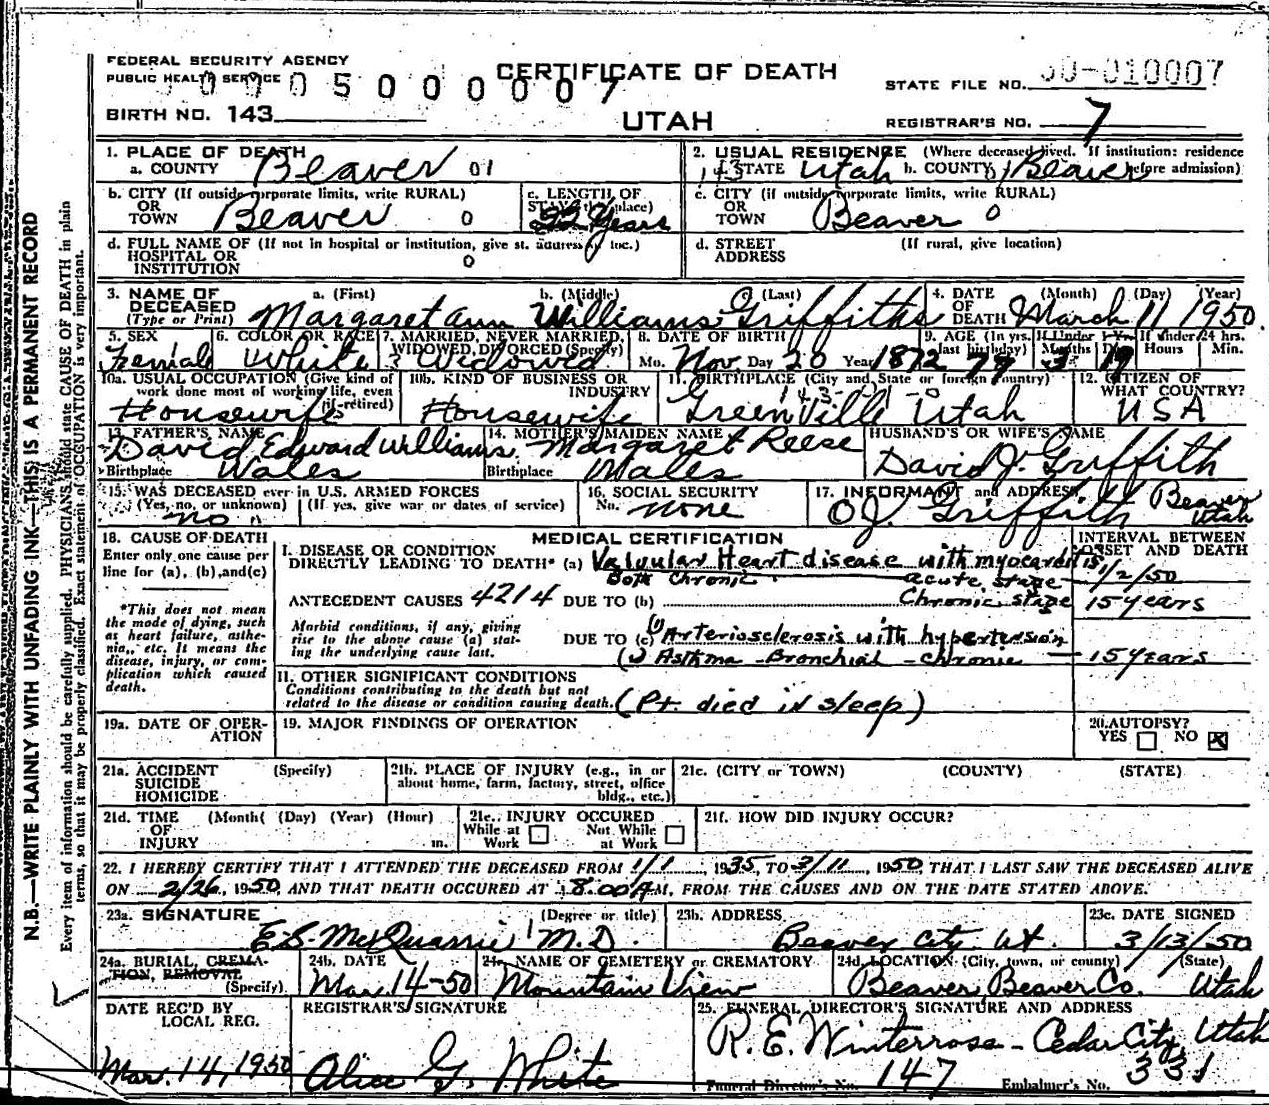 FEDERAL SECURITY AGENCY
PUBLIC HEALTH SERVICE
CERTIFICATE OF DEATH
STATE FILE NO. 50-010007
BIRTH NO. 143
UTAH
REGISTRAR'S NO. 7
1. PLACE OF DEATH
a. COUNTY Beaver 01
2. USUAL RESIDENCE (Where deceased lived. If institution: residence before admission)
143 STATE Utah b. COUNTY Beaver
b. CITY (If outside corporate limits, write RURAL)
OR
TOWN Beaver 0
c. LENGTH OF
STAY (in this place)
22 Years
c. CITY (if outside corporate limits, write RURAL)
OR
TOWN Beaver 0
d. FULL NAME OF (If not in hospital or institution, give st. address or loc.)
HOSPITAL OR
INSTITUTION 0
d. STREET
ADDRESS
(If rural, give location)
3. NAME OF
DECEASED
(Type or Print)
a. (First) b. (Middle) c. (Last)
Margaret Ann Williams Griffiths
4. DATE
OF
DEATH
(Month) (Day) (Year)
March 11 1950
5. SEX
Female
6. COLOR OR RACE
White
7. MARRIED, NEVER MARRIED,
WIDOWED, DIVORCED (Specify)
3 Widowed
8. DATE OF BIRTH
Mo. Nov. Day 20 Year 1872
9. AGE (In yrs. last birthday)
If Under 1 Yr. If Under 24 hrs.
Months Days Hours Min.
3 19
10a. USUAL OCCUPATION (Give kind of
work done most of working life, even
if retired)
Housewife
10b. KIND OF BUSINESS OR
INDUSTRY
Housewife
11. BIRTHPLACE (City and State or foreign country)
Greenville Utah
12. CITIZEN OF
WHAT COUNTRY?
USA
13. FATHER'S NAME
David Edward Williams
Birthplace Wales
14. MOTHER'S MAIDEN NAME
Margaret Reese
Birthplace Wales
HUSBAND'S OR WIFE'S NAME
David J. Griffith
15. WAS DECEASED ever in U.S. ARMED FORCES
(Yes, no, or unknown) (If yes, give war or dates of service)
no
16. SOCIAL SECURITY
No. none
17. INFORMANT and ADDRESS
O J. Griffith Beaver
Utah
18. CAUSE OF DEATH
Enter only one cause per
line for (a), (b), and (c)
*This does not mean
the mode of dying, such
as heart failure, asthe-
nia, etc. It means the
disease, injury, or com-
plication which caused
death.
MEDICAL CERTIFICATION
INTERVAL BETWEEN
ONSET AND DEATH
I. DISEASE OR CONDITION
DIRECTLY LEADING TO DEATH* (a) Valvular Heart disease with myocarditis
Both Chronic. acute stage 1/2/50
ANTECEDENT CAUSES 4214 DUE TO (b) Chronic stage 15 years
Morbid conditions, if any, giving
rise to the above cause (a) stat-
ing the underlying cause last.
DUE TO (c) (1) Arteriosclerosis with hypertension
Asthma - Bronchial - chronic 15 years
II. OTHER SIGNIFICANT CONDITIONS
Conditions contributing to the death but not
related to the disease or condition causing death. (Pt. died in sleep)
19a. DATE OF OPER-
ATION
19. MAJOR FINDINGS OF OPERATION
20. AUTOPSY?
YES NO X
21a. ACCIDENT
SUICIDE
HOMICIDE
(Specify)
21b. PLACE OF INJURY (e.g., in or
about home, farm, factory, street, office
bldg., etc.)
21c. (CITY or TOWN) (COUNTY) (STATE)
21d. TIME (Month( (Day) (Year) (Hour)
OF
INJURY m.
21e. INJURY OCCURED
While at Work Not While at Work
21f. HOW DID INJURY OCCUR?
22. I HEREBY CERTIFY THAT I ATTENDED THE DECEASED FROM 1/1, 1935, TO 3/11, 1950, THAT I LAST SAW THE DECEASED ALIVE
ON 2/26, 1950, AND THAT DEATH OCCURED AT 8:00 A M, FROM THE CAUSES AND ON THE DATE STATED ABOVE.
23a. SIGNATURE (Degree or title)
E.S. McQuarrie M.D.
23b. ADDRESS
Beaver City Ut.
23c. DATE SIGNED
3/13/50
24a. BURIAL, CREMA-
TION, REMOVAL
(Specify)
24b. DATE
Mar. 14-50
24c. NAME OF CEMETERY or CREMATORY
Mountain View
24d. LOCATION (City, town, or county) (State)
Beaver, Beaver Co. Utah
DATE REC'D BY
LOCAL REG.
Mar. 14, 1950
REGISTRAR'S SIGNATURE
Alice G. White
25. FUNERAL DIRECTOR'S SIGNATURE AND ADDRESS
R. E. Winterrose - Cedar City, Utah
Funeral Director's No. 147 Embalmer's No. 331
N.B.—WRITE PLAINLY WITH UNFADING INK—THIS IS A PERMANENT RECORD
Every item of information should be carefully supplied. PHYSICIANS should state CAUSE OF DEATH in plain
terms, so that it may be properly classified. Exact statement of OCCUPATION is very important.